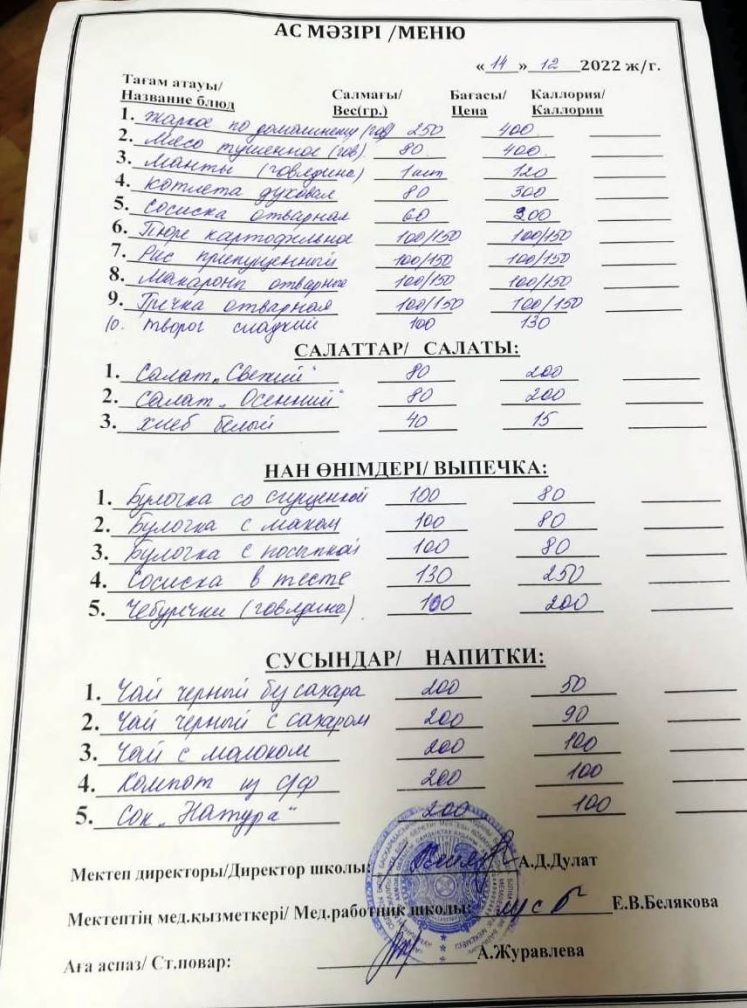 АС МӘЗІРІ /МЕНЮ
« 14 » 12 2022 ж/г.
Тағам атауы/ Салмағы/ Бағасы/ Каллория/
Название блюд Вес(гр.) Цена Каллории
1. Жаркое по домашнему (гов) 250 400
2. Мясо тушенное (гов) 80 400
3. Манты (говядина) 1 шт 120
4. Котлета духовая 80 300
5. Сосиска отварная 60 200
6. Пюре картофельное 100/150 100/150
7. Рис припущенный 100/150 100/150
8. Макароны отварные 100/150 100/150
9. Гречка отварная 100/150 100/150
10. творог сладкий 100 130
САЛАТТАР/ САЛАТЫ:
1. Салат „Свежий" 80 200
2. Салат „Осенний" 80 200
3. хлеб белый 40 15
НАН ӨНІМДЕРІ/ ВЫПЕЧКА:
1. Булочка со сгущенкой 100 80
2. Булочка с маком 100 80
3. Булочка с посыпкой 100 80
4. Сосиска в тесте 130 250
5. Чебуречки (говядина) 100 200
СУСЫНДАР/ НАПИТКИ:
1. Чай черный без сахара 200 50
2. Чай черный с сахаром 200 90
3. Чай с молоком 200 100
4. Компот из с/ф 200 100
5. Сок „Натура" 200 100
Мектеп директоры/Директор школы: А.Д.Дулат
Мектептің мед.қызметкері/ Мед.работник школы: Е.В.Белякова
Аға аспаз/ Ст.повар: А.Журавлева